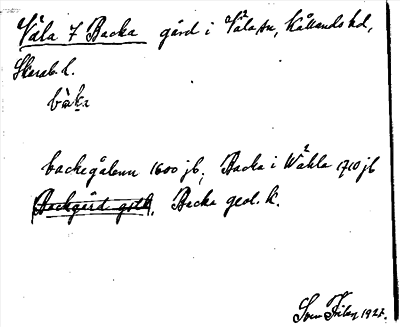 Väla 7 Backa gård i Väla sn, Kållands hd,
Skarab. l.
bàka
backegålenn 1600 jb, Backa i Wähla 1710 jb
Backgård gotl. Backa geol. k.
1927.